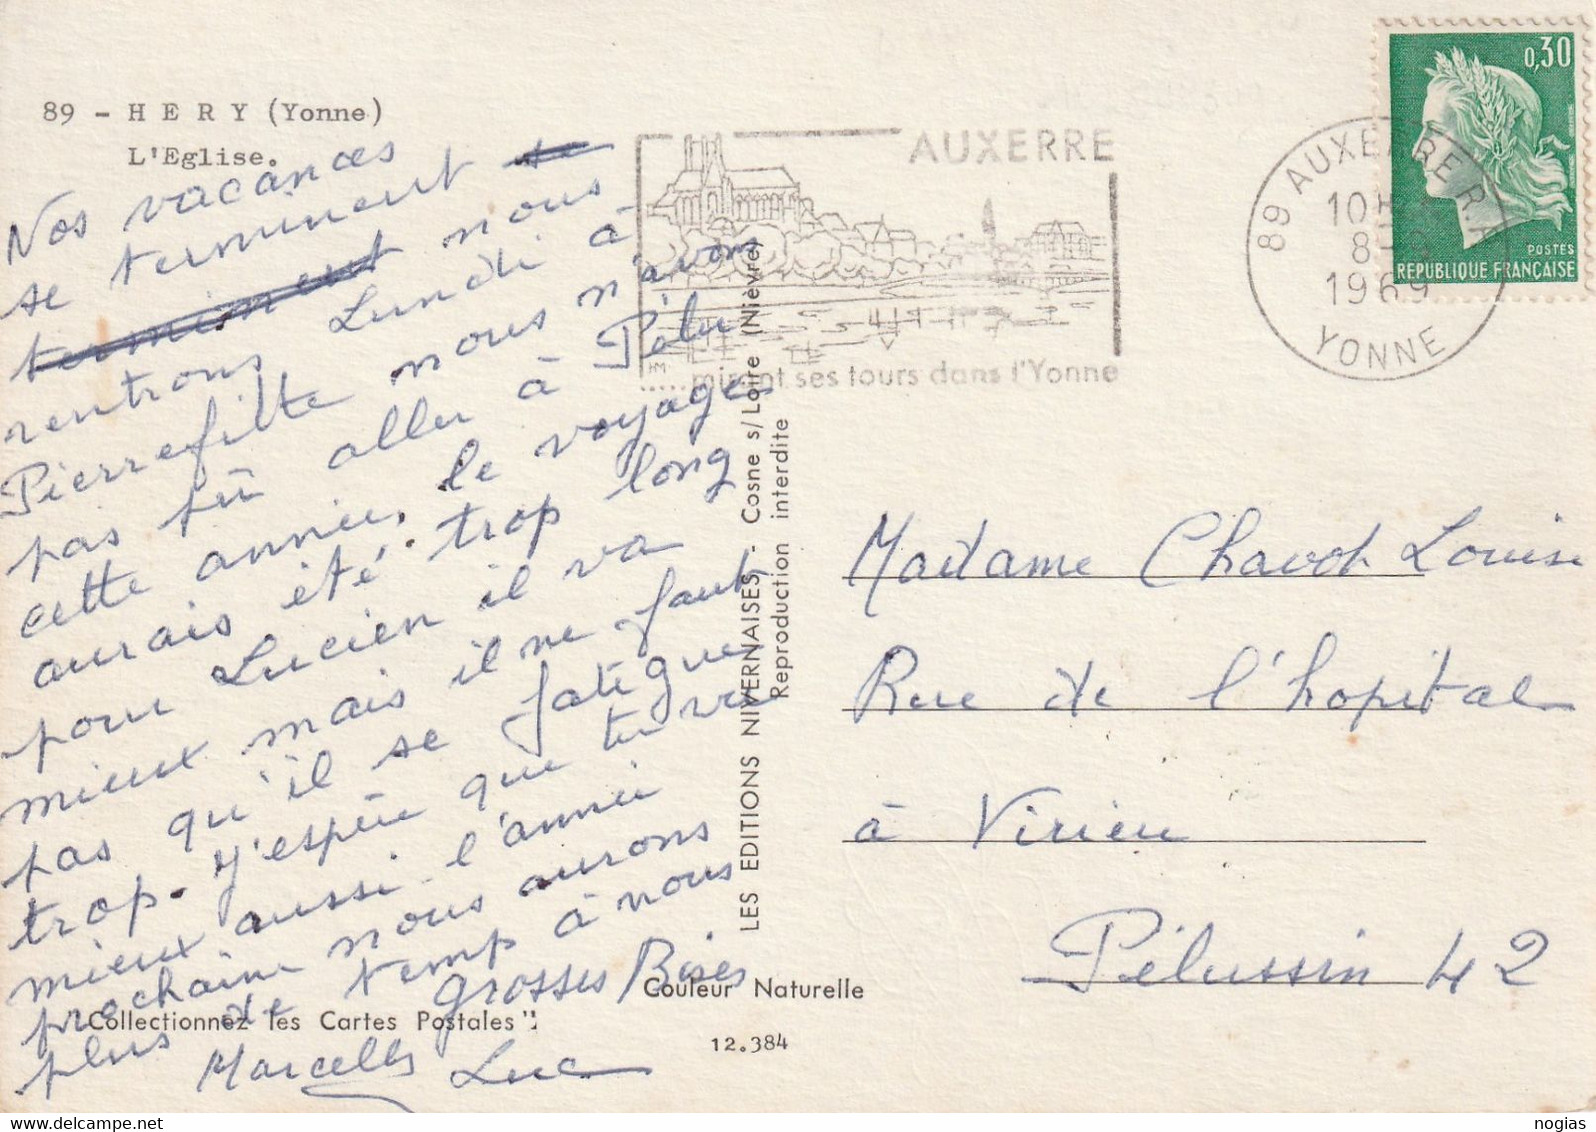 89 - HERY (Yonne)
L'Eglise.
Nos vacances
se terminent se
terminent nous
rentrons Lundi à
Pierrefitte nous n'avons
pas pû aller à Pélu
cette année, le voyage
aurais été trop long
pour Lucien il va
mieux mais il ne faut
pas qu'il se fatigue
trop. J'espère que tu vas
mieux aussi l'année
prochaine nous aurons
plus de temp à nous
Grosses Bises
Marcelle Luc
"Collectionnez les Cartes Postales"
Couleur Naturelle
12.384
LES EDITIONS NIVERNAISES - Cosne s/Loire (Nièvre)
Reproduction interdite
AUXERRE
HM
.....mirant ses tours dans l'Yonne
89 AUXERRE R.P.
10H
8
1969
YONNE
0,30
POSTES
REPUBLIQUE FRANÇAISE
Madame Chavot Louise
Rue de l'hopital
à Virieu
Pélussin 42
nogias